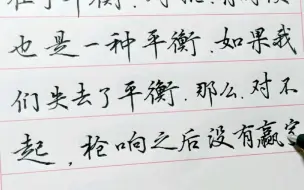 也是一种平衡.如果我
们失去了平衡.那么.对不
起,枪响之后没有赢家